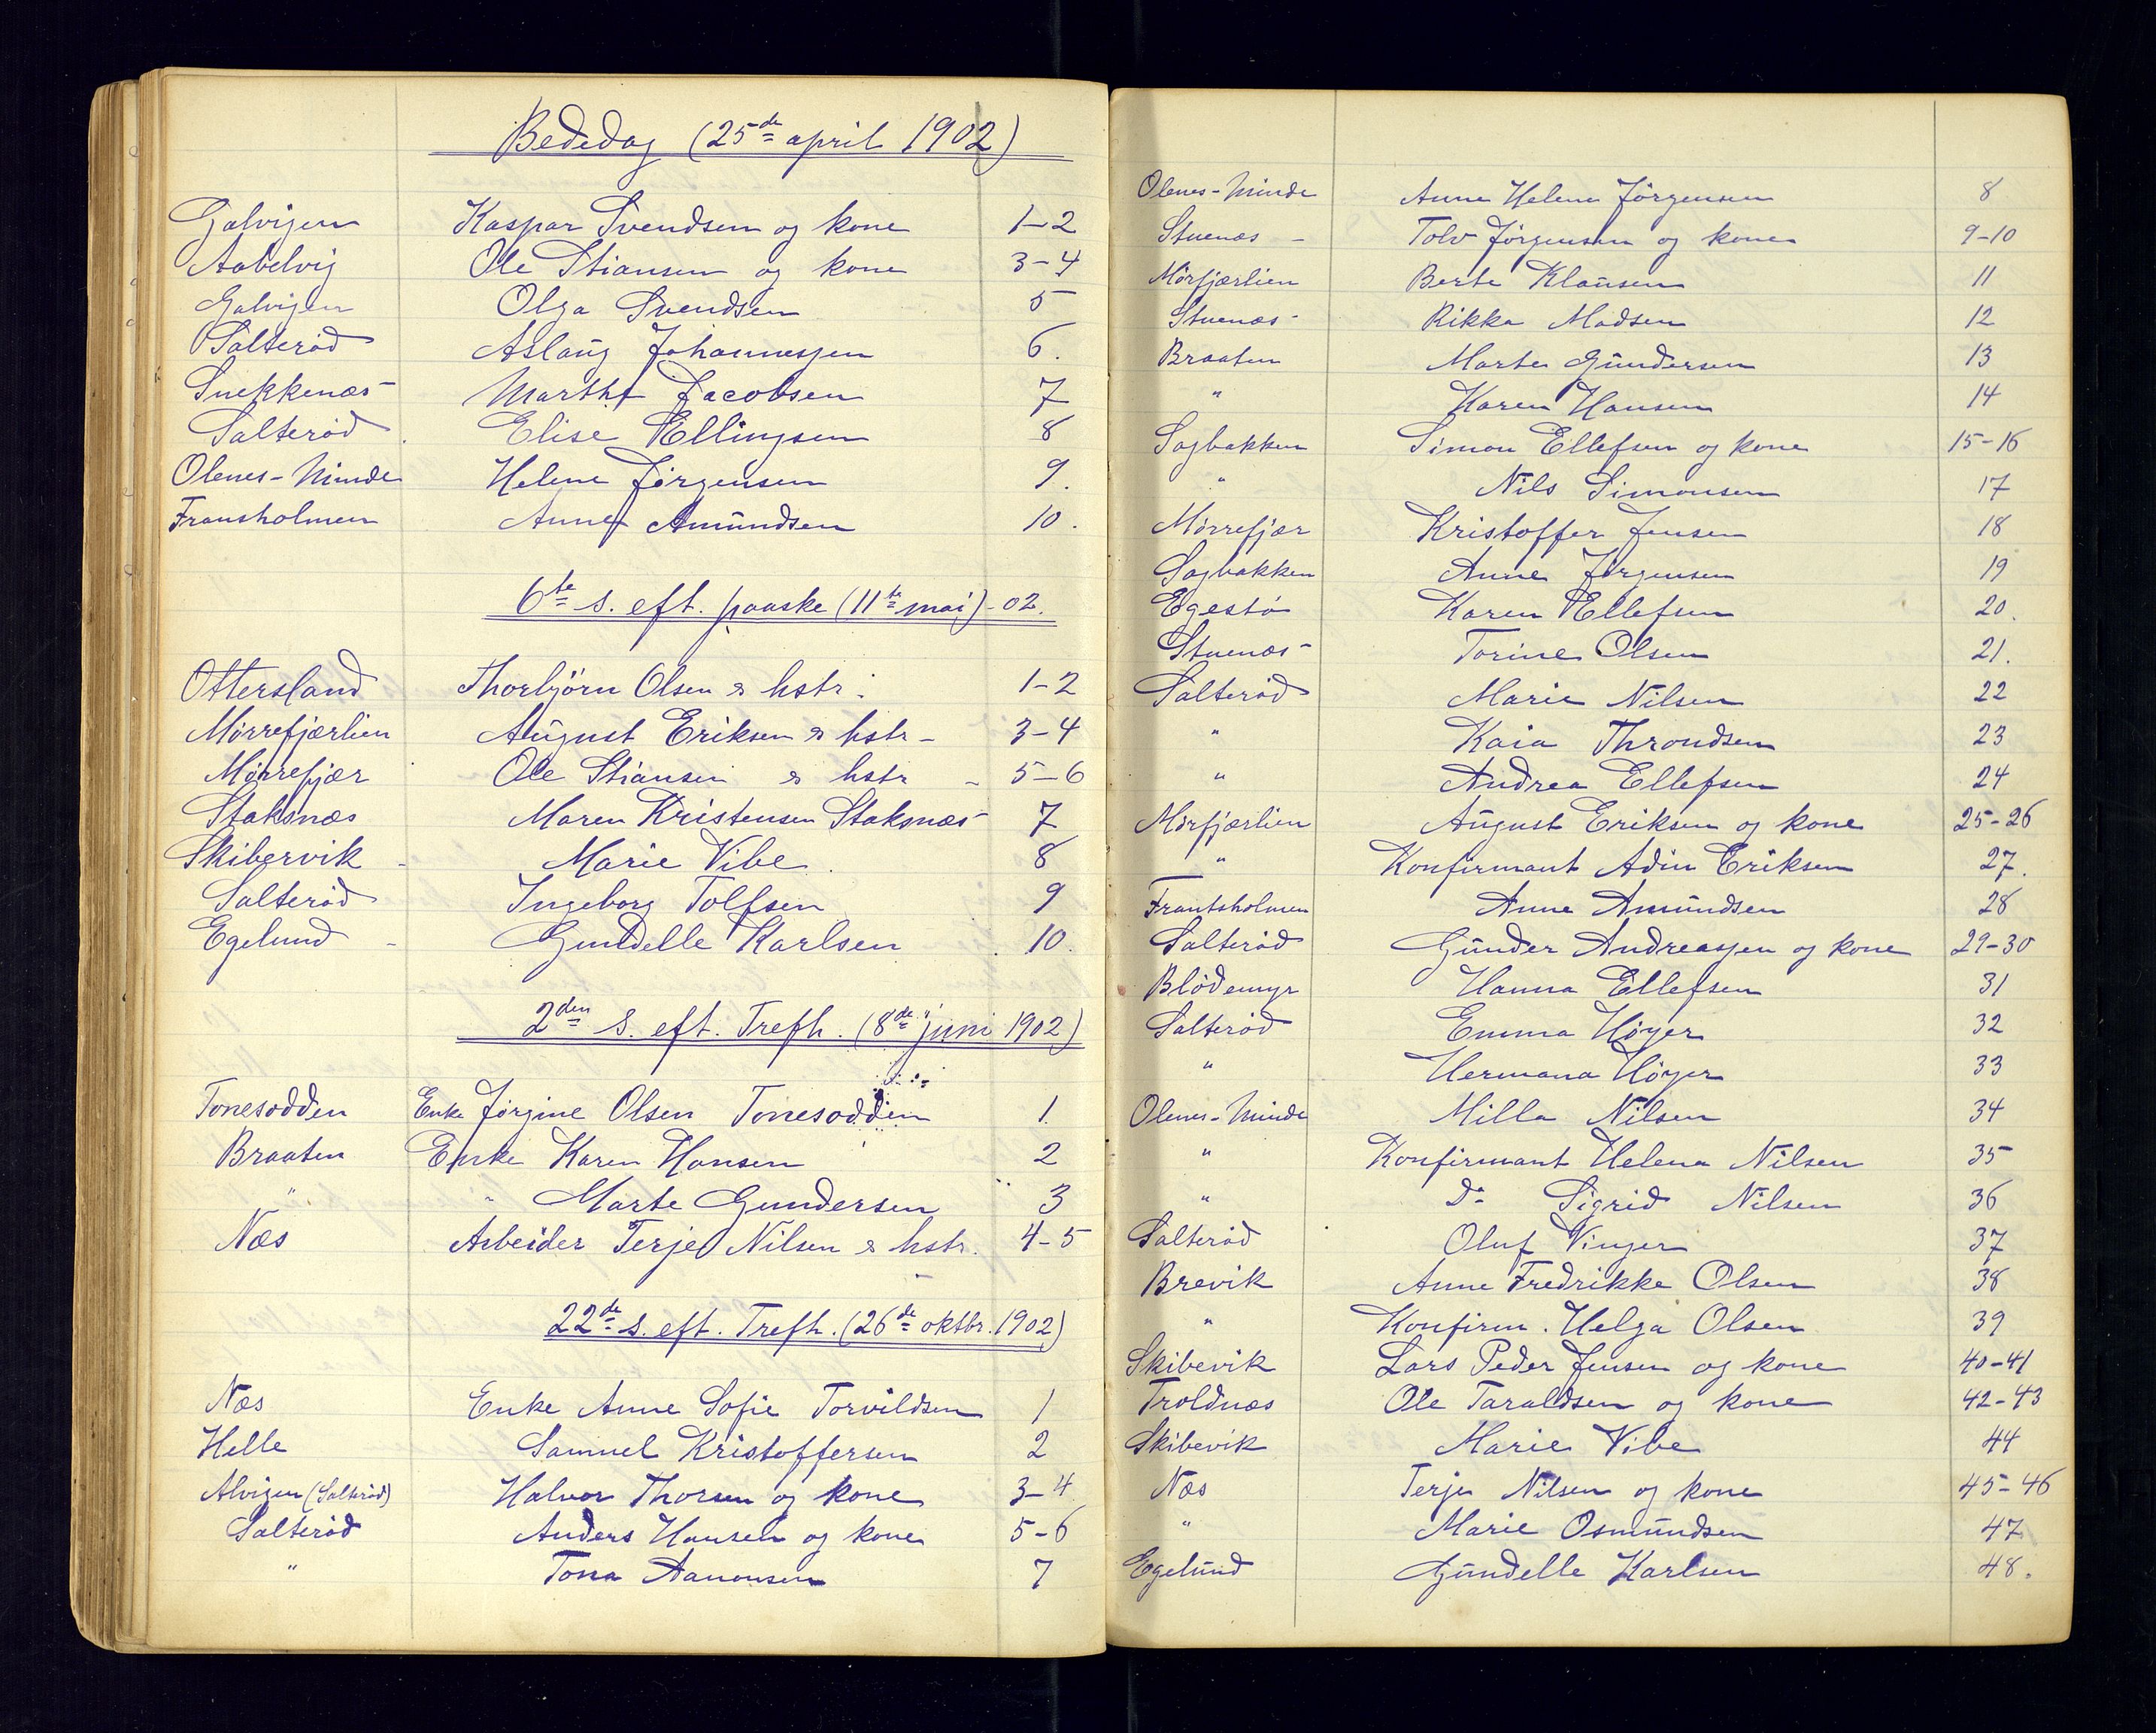 Bededag (25de april 1902)
Galvigen Kaspar Svendsen og kone 1-2
Aabelvig Ole Stiansen og kone 3-4
Galvigen Olga Svendsen 5
Salterød Aslaug Johannessen 6.
Snekkenæs Marthe Jacobsen 7
Salterød Elise Ellingsen 8
Olenes-Minde Helene Jørgensen 9.
Fransholmen Anne Amundsen 10.
6te s. eft. paaske (11te mai) -02.
Ottersland Thorbjørn Olsen & hstr. 1-2
Mørrefjærlien August Eriksen & hstr - 3-4
Mørrefjær Ole Stiansen & hstr - 5-6
Staksnæs Maren Kristensen Staksnæs 7
Skibervik - Marie Vibe. 8
Salterød Ingeborg Tollfsen 9
Egelund - Gundelle Karlsen 10.
2den s. eft. Trefh. (8de juni 1902)
Tonesodden Enke Jørgine Olsen Tonesodden 1.
Braaten Enke Karen Hansen 2
" " Marte Gundersen 3
Næs Arbeider Terje Nilsen & hstr. 4-5
22de s. eft. Trefh. (26de oktbr. 1902)
Næs Enke Anne Sofie Torvildsen 1
Helle Samuel Kristoffersen 2
Alvigen (Salterød) Halvor Thorsen og kone 3-4
Salterød Anders Hansen og kone 5-6
" Tona Aanonsen 7
Olenes-Minde Anne Helene Jørgensen 8
Stuenæs - Tolv Jørgensen og kone 9-10
Mørfjærlien Berte Klausen 11
Stuenæs - Rikka Madsen 12
Braaten Marte Gundersen 13
" Karen Hansen 14
Sagbakken Simon Ellefsen og kone 15-16
" Nils Simonsen 17
Mørrefjær Kristoffer Jensen 18
Sagbakken Anne Jørgensen 19
Egestø Karen Ellefsen 20.
Stuenæs - Torine Olsen 21.
Salterød Marie Nilsen 22
" Kaia Throndsen 23
" Andrea Ellefsen 24
Mørfjærlien August Eriksen og kone 25-26
" Konfirmant Adin Eriksen 27.
Frantsholmen Anne Amundsen 28
Salterød Gunder Andreassen og kone 29-30
Blødemyr Hanna Ellefsen 31
Salterød Emma Høyer 32
" Hermana Høyer 33
Olenes-Minde Milla Nilsen 34
" Konfirmant Helena Nilsen 35
" Do Sigrid Nilsen 36
Salterød Oluf Vinger 37
Brevik Anne Fredrikke Olsen 38
" Konfirm. Helga Olsen 39
Skibevik Lars Peder Jensen og kone 40-41
Troldnæs Ole Taraldsen og kone 42-43
Skibevik Marie Vibe 44
Næs Terje Nilsen og kone 45-46
" Marie Osmundsen 47
Egelund Gundelle Karlsen 48.